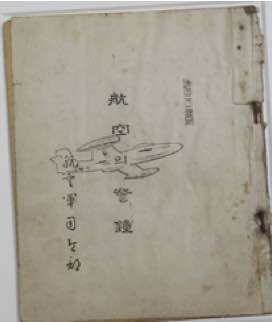 航空의警鐘
航空軍司令部